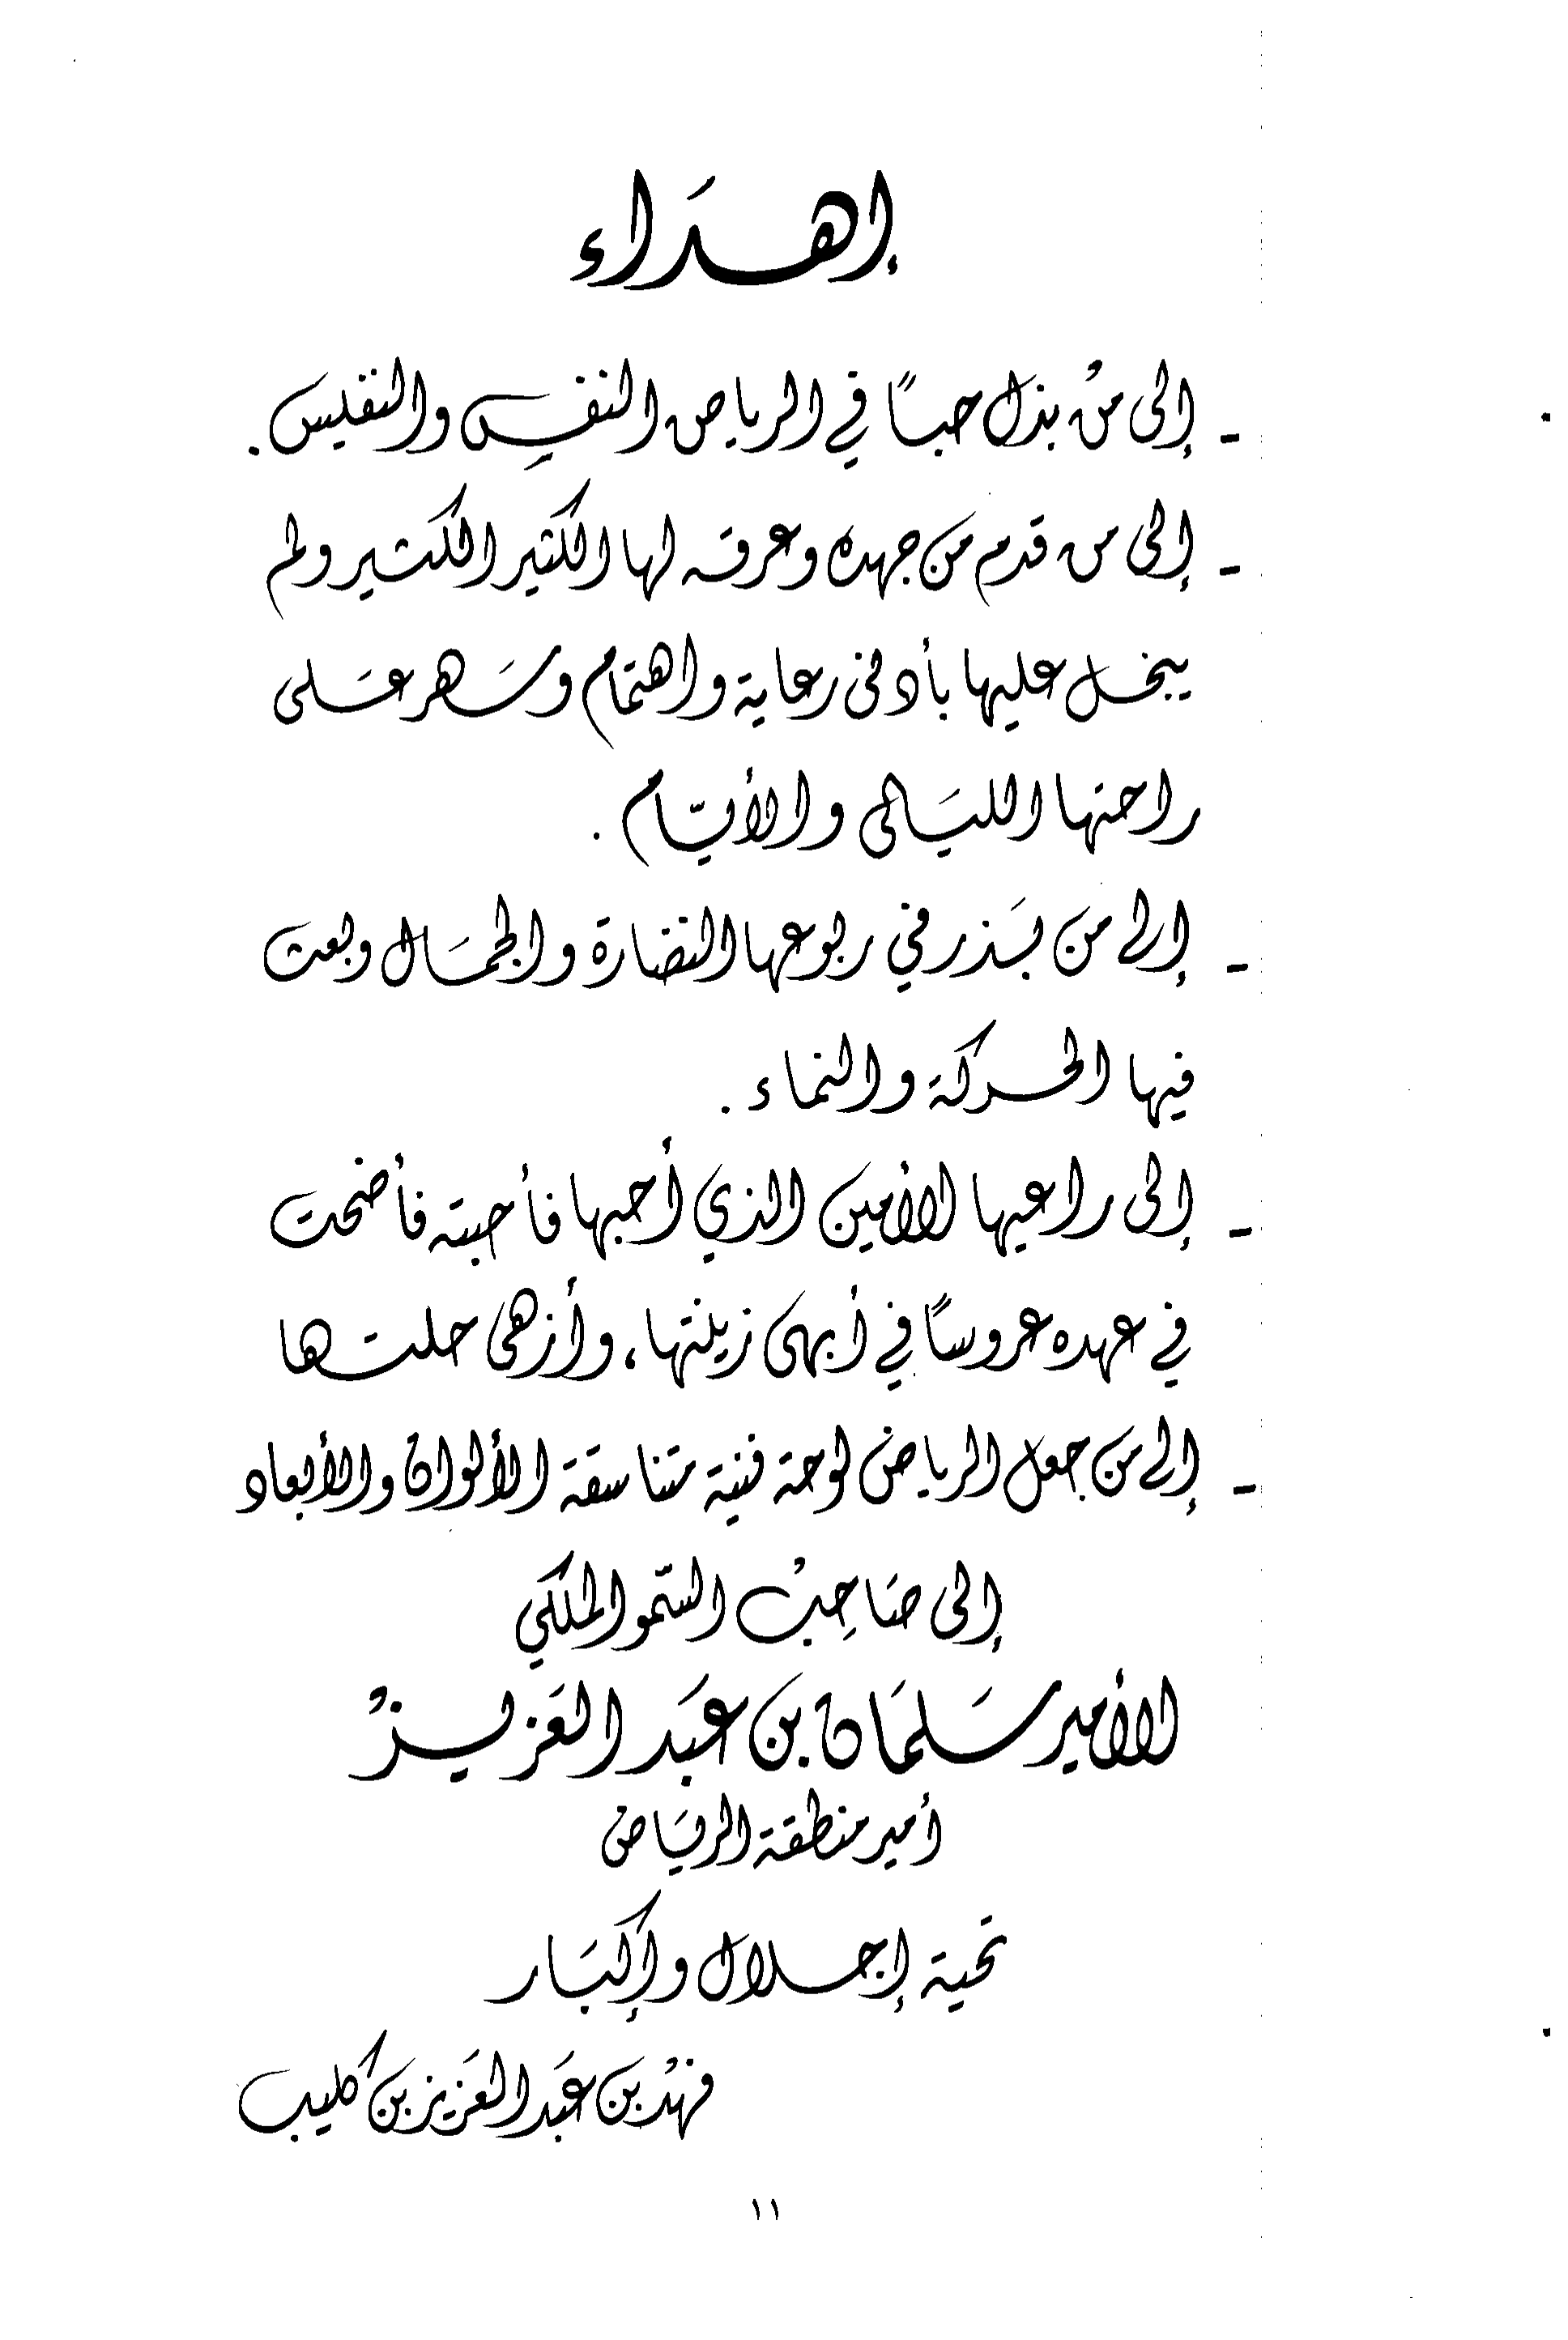 إهداء
- إلى من بذل حباً في الرياض النفس والنفيس .
- إلى من قدم من جهده وعرقه لها الكثير الكثير ولم
يبخل عليها بأدنى رعاية واهتمام وسهر على
راحتها الليالي والأيام .
- إلى من بذر في ربوعها النضارة والجمال وبعث
فيها الحركة والنماء .
- إلى راعيها الأمين الذي أحبها فأحبته فأضحت
في عهده عروساً في أبهى زينتها، وأزهى حلتها
- إلى من جعل الرياض لوحة فنية متناسقة الألوان والأبعاد
إلى صاحب السمو الملكي
الأمير سلمان بن عبد العزيز
أمير منطقة الرياض
تحية إجلال وإكبار
فهد بن عبد العزيز بن كليب
١١